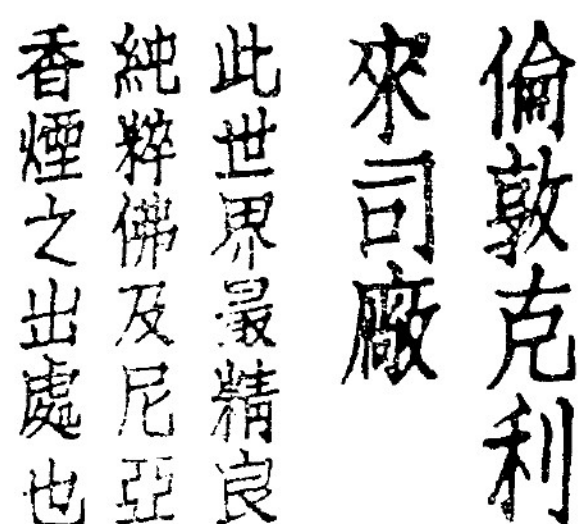 倫敦克利
來司廠
此世界最精良
純粹佛及尼亞
香煙之出處也